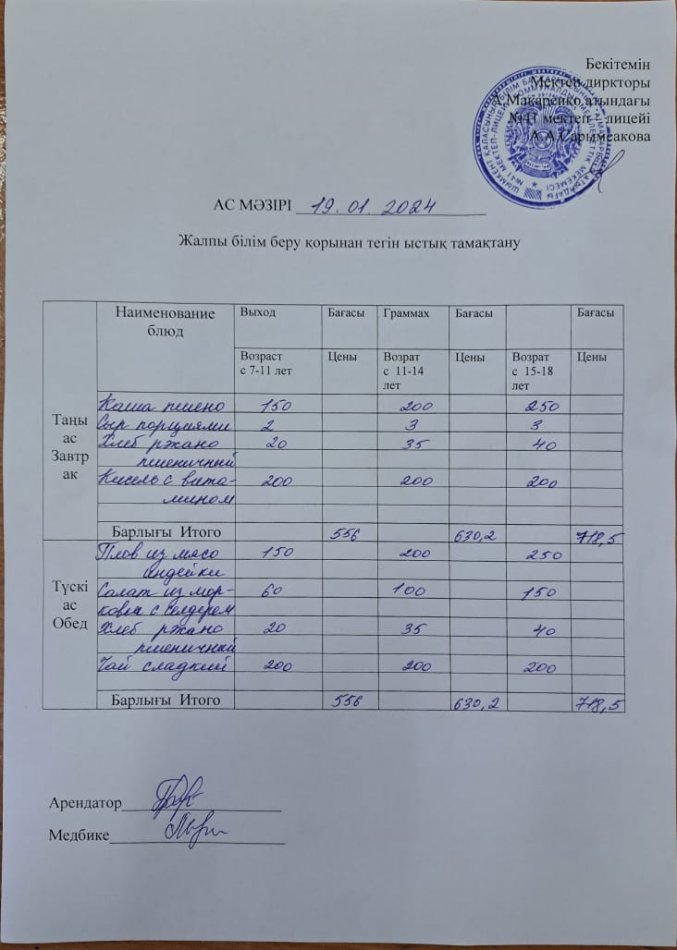 Бекітемін
Мектеп диркторы
А.Макаренко атындағы
№41 мектеп - лицейі
А.А.Сарымсакова
АС МӘЗІРІ 19.01.2024
Жалпы білім беру қорынан тегін ыстық тамақтану
Наименование блюд Выход Бағасы Граммах Бағасы Бағасы
Возраст с 7-11 лет Цены Возрат с 11-14 лет Цены Возрат с 15-18 лет Цены
Таңы ас Завтр ак
Каша пшено 150 200 250
Сыр порциями 2 3 3
Хлеб ржано 20 35 40
пшеничный
Кисель с вита- 200 200 200
мином
Барлығы Итого 556 630,2 718,5
Түскі ас Обед
Плов из мясо 150 200 250
индейки
Салат из мор- 60 100 150
ковки с селдерем
Хлеб ржано 20 35 40
пшеничный
Чай сладкий 200 200 200
Барлығы Итого 556 630,2 718,5
Арендатор
Медбике